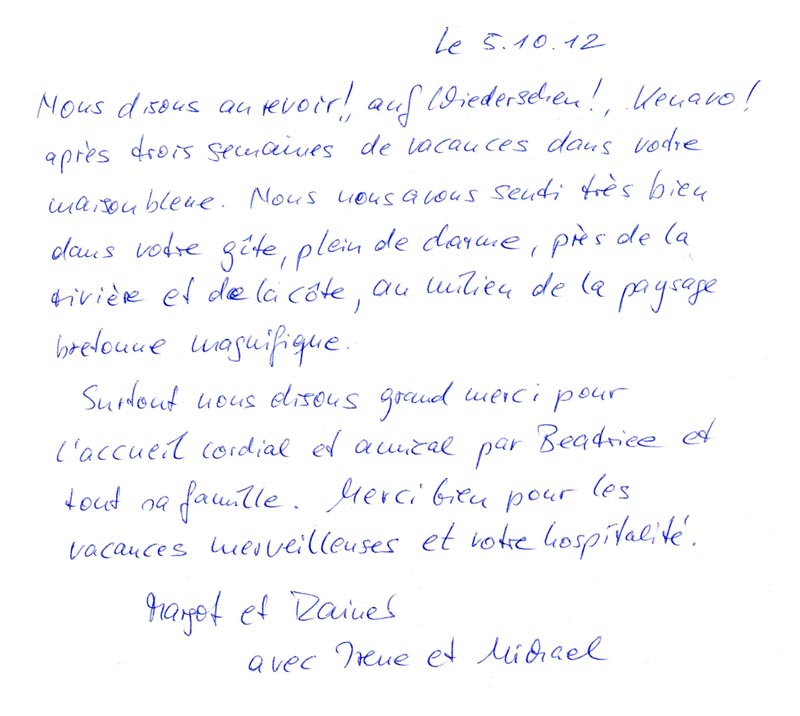 Le 5.10.12
Nous disons au revoir!, auf Wiedersehen!, Kenavo!
après trois semaines de vacances dans votre
maison bleue. Nous nous avons senti très bien
dans votre gîte, plein de charme, près de la
rivière et de la côte, au milieu de la paysage
bretonne magnifique.
Surtout nous disons grand merci pour
l'accueil cordial et amical par Beatrice et
tout sa famille. Merci bien pour les
vacances merveilleuses et votre hospitalité.
Margot et Rainer
avec Irene et Michael